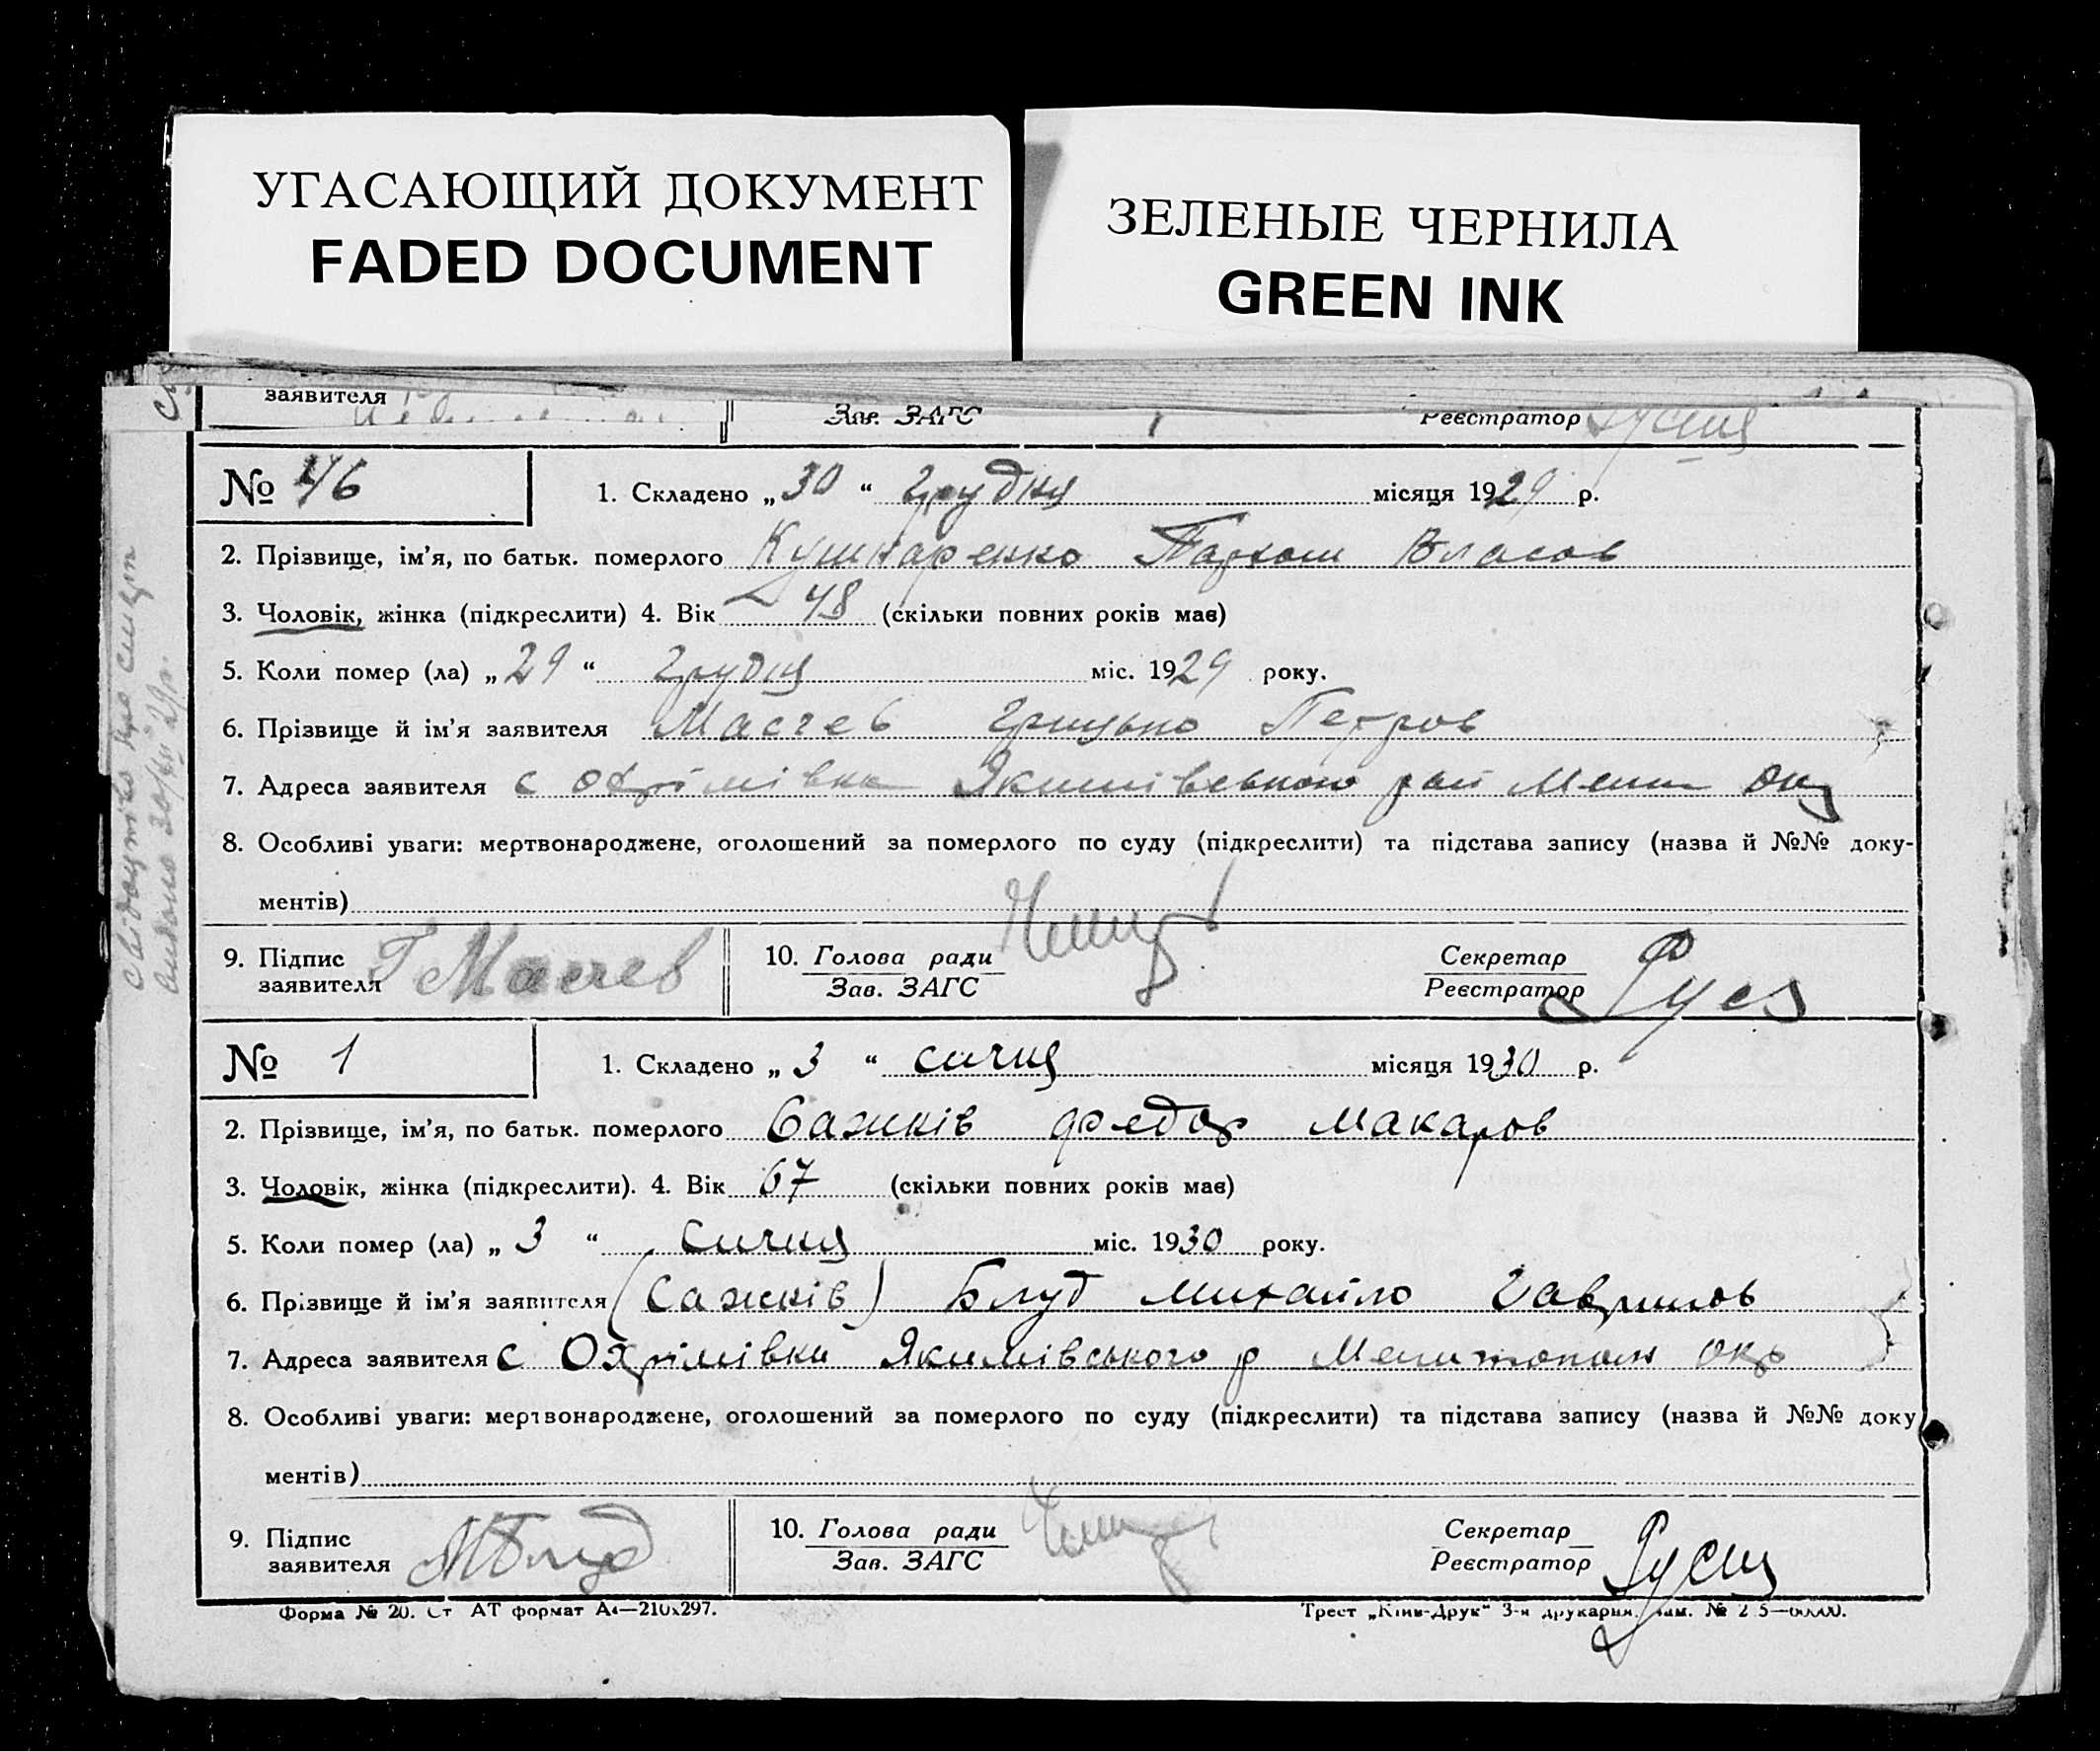 УГАСАЮЩИЙ ДОКУМЕНТ
FADED DOCUMENT
ЗЕЛЕНЫЕ ЧЕРНИЛА
GREEN INK
заявителя
Зав. ЗАГС
Реєстратор
№ 46
1. Складено „30“ грудня місяця 1929 р.
2. Прізвище, ім'я, по батьк. померлого Кушнаренко Пархом Власов
3. Чоловік, жінка (підкреслити) 4. Вік 48 (скільки повних років має)
5. Коли помер (ла) „29“ грудня міс. 1929 року.
6. Прізвище й ім'я заявителя Масчев Грицько Петров
7. Адреса заявителя с Охрімівка Якимівського рай Мелит окр
8. Особливі уваги: мертвонароджене, оголошений за померлого по суду (підкреслити) та підстава запису (назва й №№ доку-
ментів)
9. Підпис заявителя Г Масчев
10. Голова ради
Зав. ЗАГС
Секретар
Реєстратор
свідоцтво про смерть
видано 30/XII 29р.
№ 1
1. Складено „3“ сичня місяця 1930 р.
2. Прізвище, ім'я, по батьк. померлого Сажків Федор Макаров
3. Чоловік, жінка (підкреслити). 4. Вік 67 (скільки повних років має)
5. Коли помер (ла) „3“ Сичня міс. 1930 року.
6. Прізвище й ім'я заявителя (Сажків) Блуд Михайло Гаврилов
7. Адреса заявителя с Охрімівки Якимівського р Мелитопольк окр
8. Особливі уваги: мертвонароджене, оголошений за померлого по суду (підкреслити) та підстава запису (назва й №№ доку
ментів)
9. Підпис заявителя МБлуд
10. Голова ради
Зав. ЗАГС
Секретар
Реєстратор
Форма № 20. Ст АТ формат А4—210х297.
Трест „Київ-Друк“ 3-я друкарня.